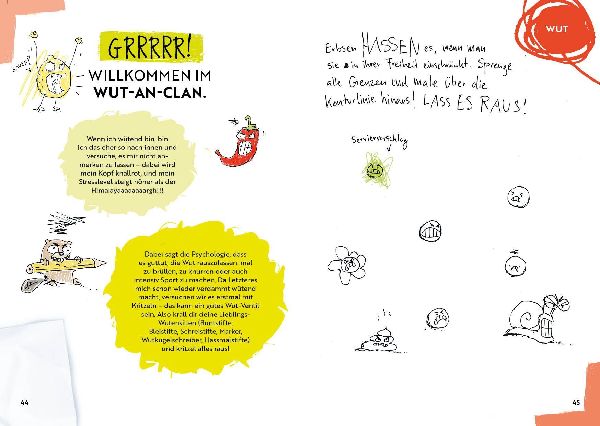 GRRRRR!
WILLKOMMEN IM
WUT-AN-CLAN.
Wenn ich wütend bin, bin
ich das eher so nach innen und
versuche, es mir nicht an-
merken zu lassen – dabei wird
mein Kopf knallrot, und mein
Stresslevel steigt höher als der
Himalayaaaaaaaargh!!!
Dabei sagt die Psychologie, dass
es guttut, die Wut rauszulassen, mal
zu brüllen, zu knurren oder auch
intensiv Sport zu machen. Da Letzteres
mich schon wieder verdammt wütend
macht, versuchen wir es erstmal mit
Kritzeln – das kann ein gutes Wut-Ventil
sein. Also krall dir deine Lieblings-
Wutensilien (Buntstifte,
Bleistifte, Schreistifte, Marker,
Wutkugelschreiber, Hassmalstifte)
und kritzel alles raus!
44
WUT
Erbsen HASSEN es, wenn man
sie in ihrer Freiheit einschränkt. Sprenge
alle Grenzen und male über die
Konturlinie hinaus! LASS ES RAUS!
Serviervorschlag
45